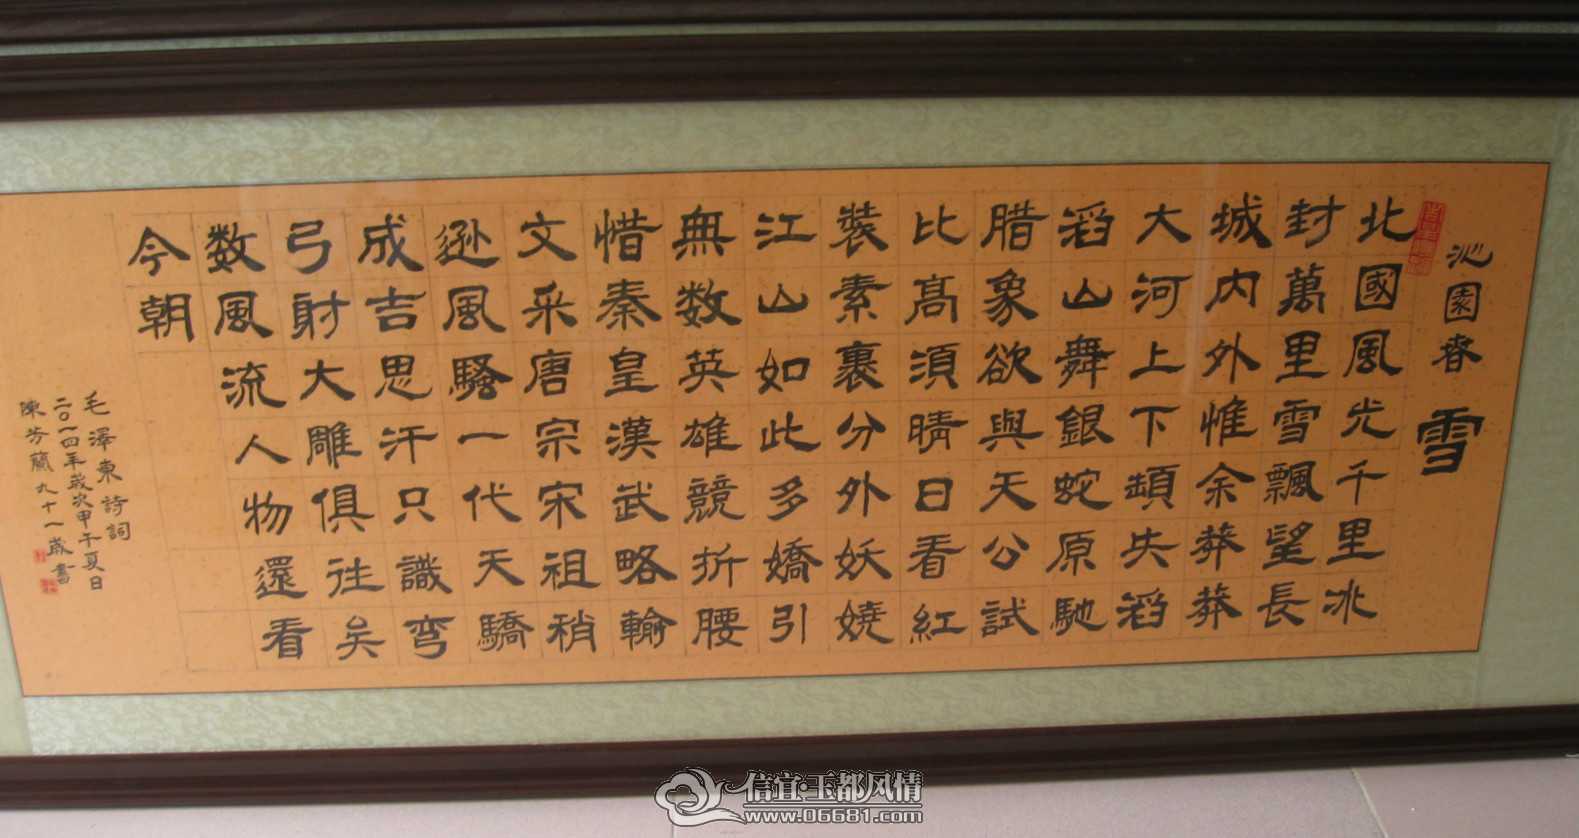 沁園春 雪
北國風光千里冰
封萬里雪飄望長
城内外惟余莽莽
大河上下頓失滔
滔山舞銀蛇原馳
腊象欲與天公試
比髙須晴日看紅
裝素裹分外妖嬈
江山如此多嬌引
無数英雄競折腰
惜秦皇漢武略輸
文采唐宗宋祖稍
遜風騷一代天驕
成吉思汗只識彎
弓射大雕俱往矣
数風流人物還看
今朝
毛澤東詩詞
二〇一四年歲次甲午夏日
陳芳蘭九十一歲書
信宜·玉都风情
www.06681.com